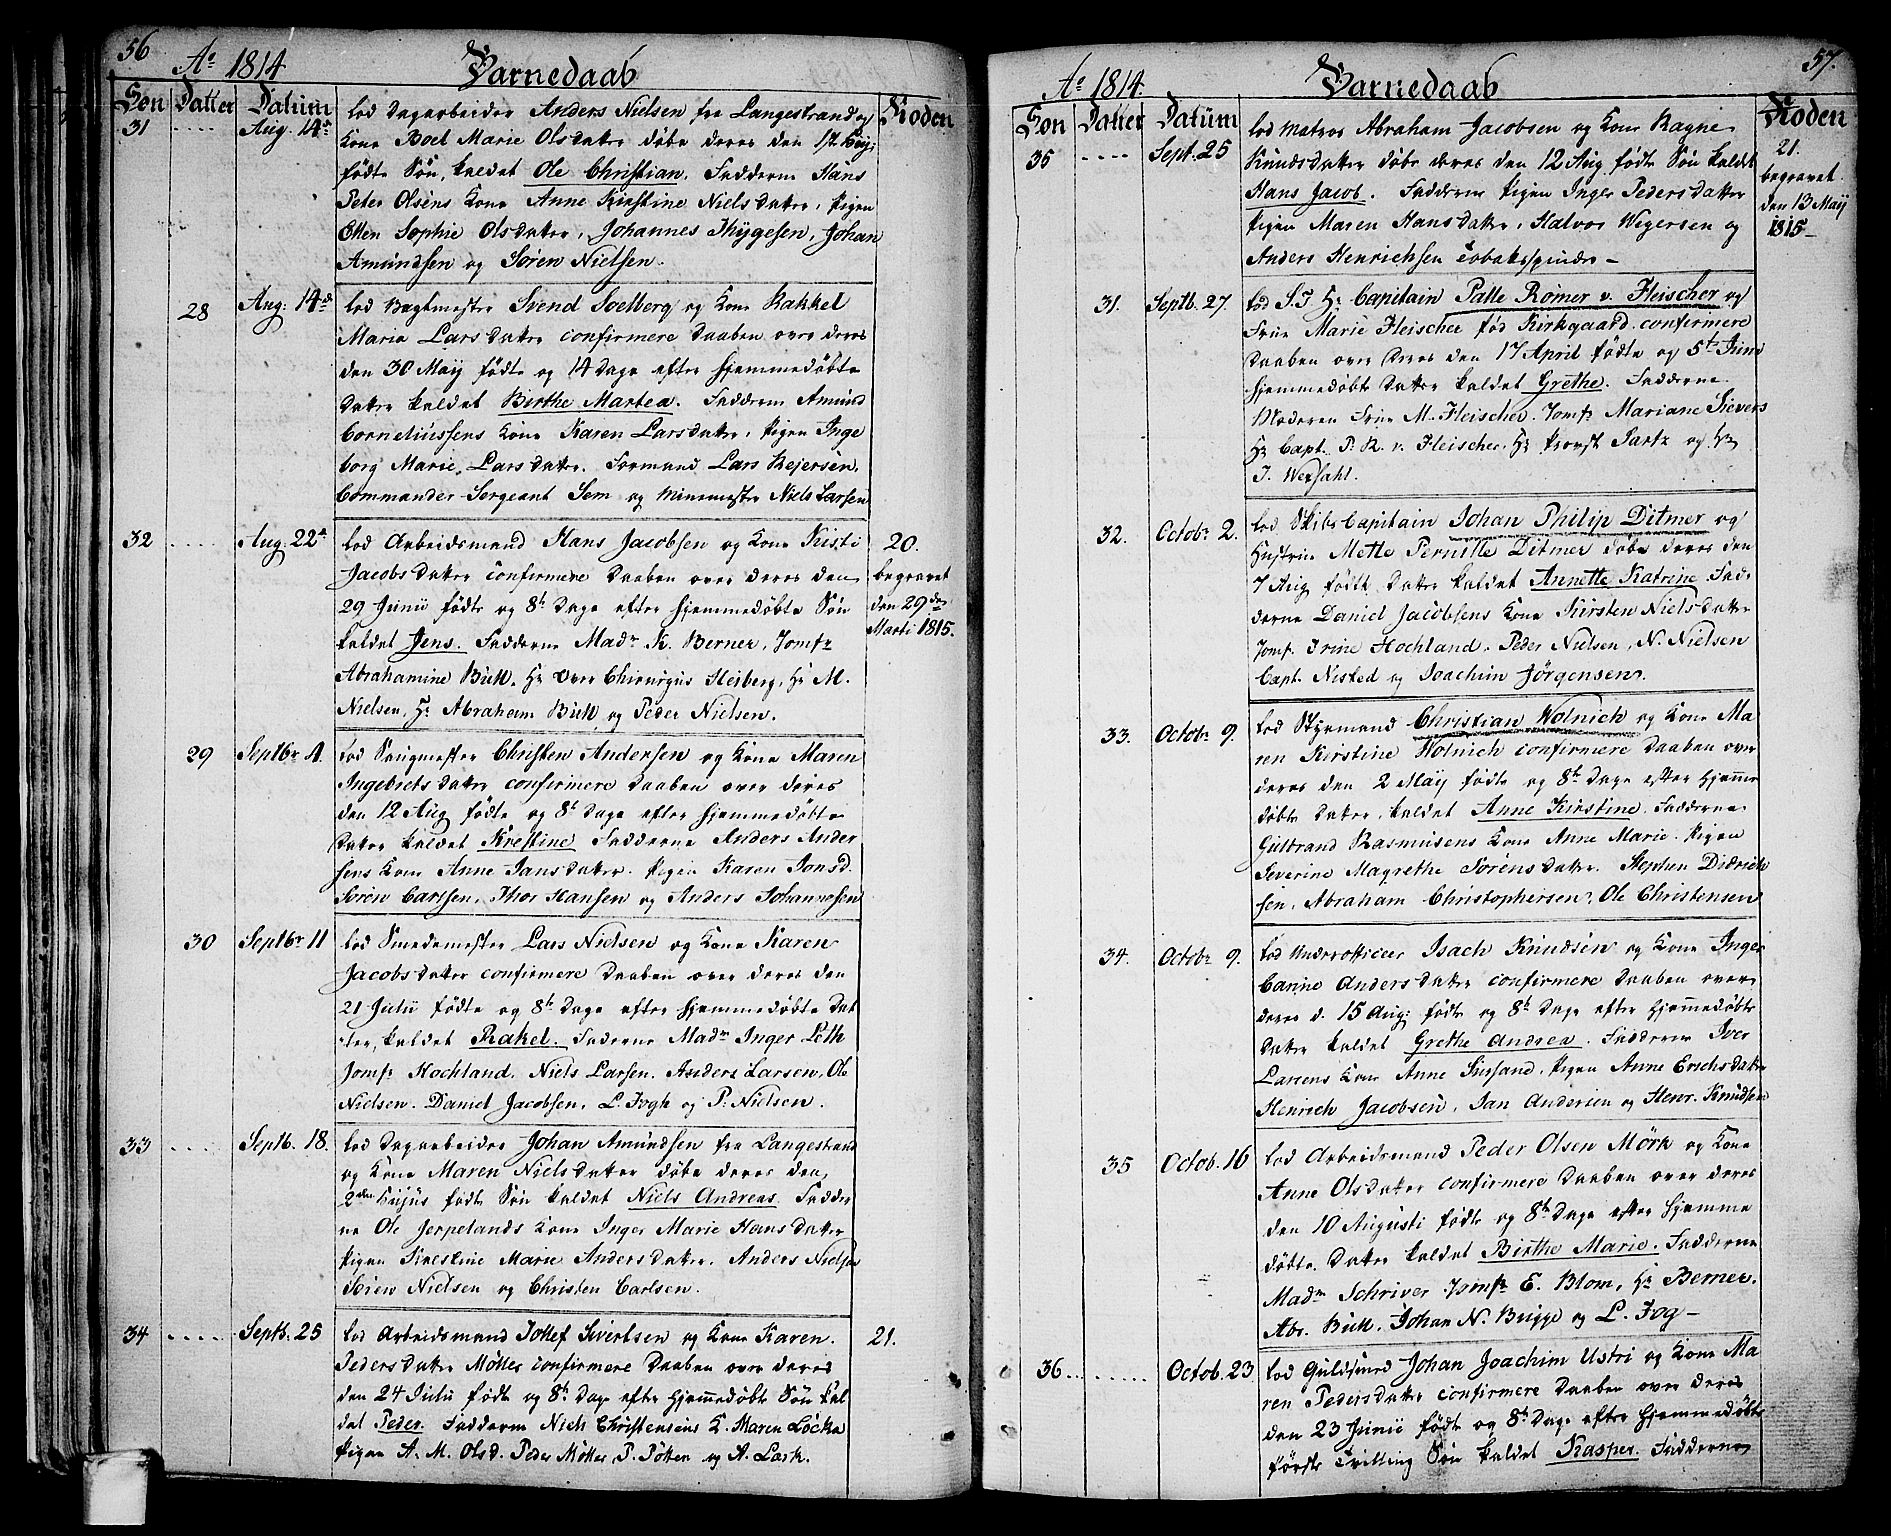 56
Ao 1814 Barnedaab
Søn Datter Datum Koden
31 .... Aug. 14d lod Dagarbeider Anders Nielsen fra Langestrand og
Kone Boel Marie Olsdatter døbe deres den 12
fødte Søn, kaldet Ole Christian. Fadderne Hans
Peter Olsens Kone Anne Kirstine Nielsdatter, Pigen
Ellen Sophie Olsdatter, Johannes Thygesen, Johan
Amundsen og Søren Nielsen.
28 Aug: 14de lod Bagtmester Svend Soelberg og Kone Rakkel
Maria Larsdatter confirmere Daaben over deres
den 30 Maij fødte og 14 Dage efter hjemmedøbte
Datter kaldet Birthe Martea. Fadderne Amund
Corneliussens Kone Karen Larsdatter, Pigen Inge
borg Marie Larsdatter. Formand Lars Rejersen,
Commander Sergeant Sem og Minemester Niels Larsen
32 .... Aug. 22d lod Arbeidsmand Hans Jacobsen og Kone Kirsti 20.
Jacobsdatter confirmere Daaben over deres den begravet
29 Junii fødte og 8te Dage efter hjemmedøbte Søn den 29de
kaldet Jens. Fadderne Madm K. Berner, Jomfr Marti 1815.
Abrahamine Bull, Hr Over Chirurgus Heiberg, Hr M.
Nielsen, Hr Abraham Bull og Peder Nielsen.
29 Septbr 4. lod Saugmester Christen Andersen og Kone Maren
Ingebretsdatter confirmere Daaben over deres
den 12 Aug fødte og 8t Dage efter hjemmedøbte
Datter kaldet Krestine Fadderne Anders Ander
sens Kone Anne Jansdatter. Pigen Karen Jonsd.
Søren Carlsen, Thor Hansen og Anders Johannesen
30 Septbr 11 lod Smedemester Lars Nielsen og Kone Karen
Jacobsdatter confirmere Daaben over deres den
21 Julii fødte og 8te Dage efter hjemmedøbte Dat
ter, kaldet Rakel. Fadderne Madm Inger Leth
Jomfr Hochland. Niels Larsen. Anders Larsen, Ole
Nielsen. Daniel Jacobsen, L. Fogh og P. Nielsen.
33 .... Septb. 18. lod Dagarbeider Johan Amundsen fra Langestrand
og Kone Maren Nielsdatter døbe deres den
2den hujus fødte Søn kaldet Niels Andreas. Fadder
ne Ole Jerpelands Kone Inger Marie Hansdatter
Pigen Krestine Marie Andersdatter. Anders Nielsen
Søren Nielsen og Christen Carlsen.
34 ..... Septb. 25 lod Arbeidsmand Tollef Sivertsen og Kone Karen 21.
Pedersdatter Møller confirmere Daaben over deres
den 24 Julii fødte og 8te Dage efter hjemmedøbte Søn kal
det Peder. Fadderne Niels Christensens K. Maren Løcka
Pigen A. M. Olsd. Peder Møller P. Potten og A. Lark.
57.
Ao 1814. Barnedaab
Søn Datter Datum Koden
35 .... Sept. 25 lod Matros Abraham Jacobsen og Kone Ragne 21.
Knudsdatter døbe deres den 12 Aug fødte Søn kaldet begravet
Hans Jacob. Fadderne Pigen Inger Pedersdatter den 13 Maij
Pigen Maren Hansdatter. Halvor Wegersen og 1815-
Anders Henrichsen Tobaksspinder –
31. Septb. 27. lod S.T. Hr Capitain Palle Rømer v. Fleischer og
Frue Marie Fleischer fød Kirkgaard confirmere
Daaben over deres den 17 April fødte og 5te Junii
hjemmedøbte Datter kaldet Grethe. Fadderne
Moderen Frue M. Fleischer. Jomfr Mariane Sievers
Hr Capt. P. R. v. Fleischer, Hr Provst Sartz og Hr
J. Wexsahl.
32. Octobr 2. lod Skibs Capitain Johan Philip Ditmer og
Hustrue Mette Pernille Ditmer døbe deres den
7 Aug fødte Datter kaldet Annette Katrine Fad-
derne Daniel Jacobsens Kone Kirsten Nielsdatter
Jomfr Trine Hochland, Peder Nielsen, N. Nielsen
Capt. Nisted og Joachim Jørgensen.
33. Octobr 9. lod Styrmand Christian Wolnich og Kone Ma
ren Kirstine Wolnich confirmere Daaben over
deres den 2 Maij fødte og 8te Dage efter hjemme
døbte Datter kaldet Anne Kirstine. Fadderne
Gulbrand Rasmusens Kone Anne Marie. Pigen
Severine Magrethe Sørensdatter. Stephen Didrich
sen, Abraham Christophersen, Ole Christensen
34. Octobr 9. lod Underofficeer Isach Knudsen og Kone Inger
Canne Andersdatter confirmere Daaben over
deres d. 15 Aug: fødte og 8te Dage efter hjemmedøbte
Datter kaldet Grethe Andrea. Fadderne Iver
Larsens Kone Anne Sursand. Pigen Anne Erichsdatter
Henrich Jacobsen, Jan Andersen og Henr. Knudsen
35 Octob. 16 lod Arbeidsmand Peder Olsen Mörk og Kone
Anne Olsdatter confirmere Daaben over deres
den 10 Augusti fødte og 8te Dage efter hjemme
døbte Datter kaldet Birthe Marie. Fadderne
Madm Schriver Jomfr E. Blom, Hr Berner.
Abr. Bull. Johan N. Bugge og L. Fog –
36... ..... Octob. 23 lod Guldsmed Johan Joachim Ustri og Kone Ma
ren Pedersdatter confirmere Daaben over deres
den 23 Junii fødte og 8te Dage efter hjemmedøbte
første Tvilling Søn kaldet Kasper. Fadderne